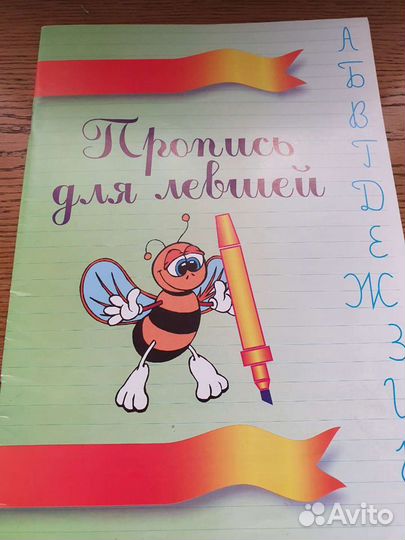 Пропись
для левшей
А
Б
В
Г
Д
Е
Ж
З
И
Avito